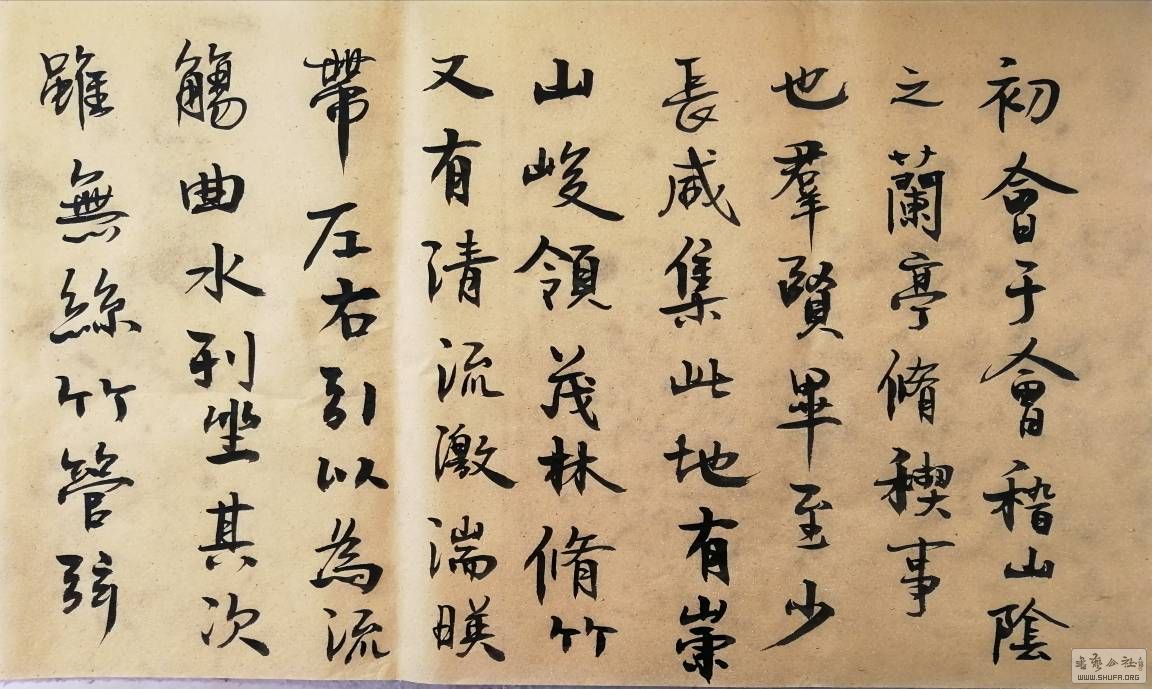 初會于會稽山陰
之蘭亭脩稧事
也羣賢畢至少
長咸集此地有崇
山峻領茂林脩竹
又有清流激湍暎
帶左右引以為流
觴曲水列坐其次
雖無絲竹管弦
WWW.SHUFA.ORG